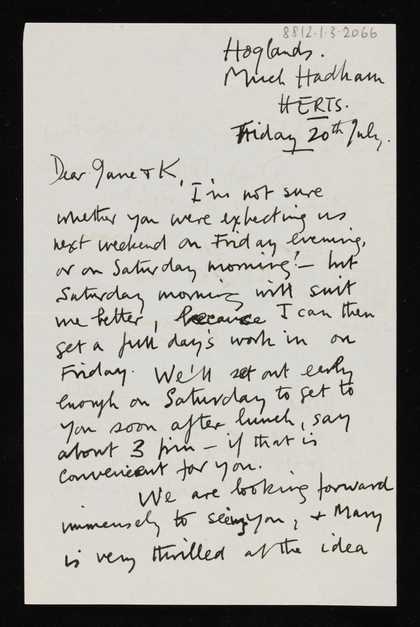 8812.1.3.2066
Hoglands.
Much Hadham
HERTS.
Friday 20th July.
Dear Jane & K,
I'm not sure
whether you were expecting us
next weekend on Friday evening,
or on Saturday morning! – but
Saturday morning will suit
me better, because I can then
get a full day's work in on
Friday. We'll set out early
enough on Saturday to get to
you soon after lunch, say
about 3 pm – if that is
convenient for you.
We are looking forward
immensely to seeing you, & Mary
is very thrilled at the idea